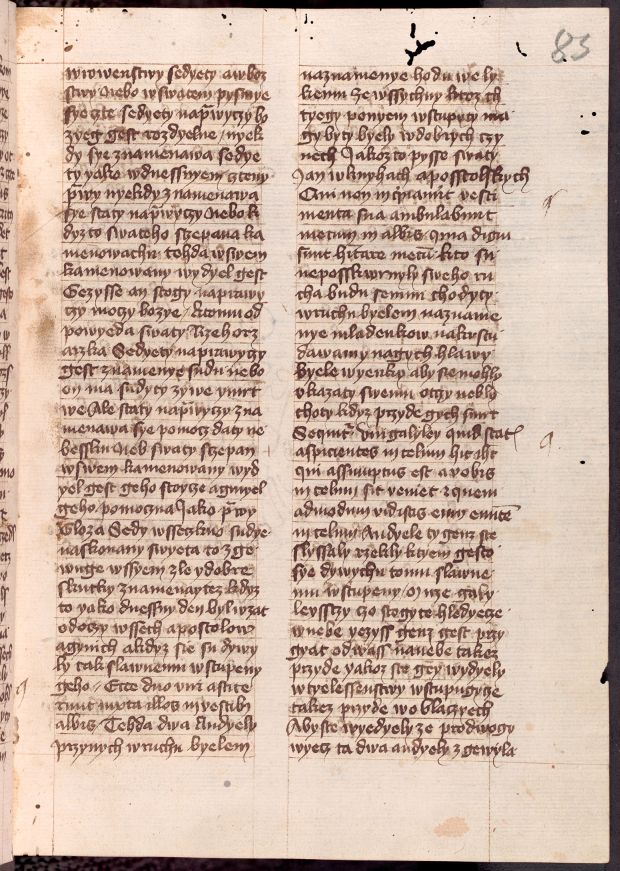 83
wrowenstwy sedyety a w boz
stwy Nebo w swatem pysmye
sye gte sedyety naprwyczy bo
zyeg gest rozdyelne / nyek
dy sye znamenawa sedye
ty yako w dnessnyem gteny
prwy nyekdy znamenawa
sye staty naprwyczy Nebo k
dyzto swateho sczepana ka
menowachu tehda w swem
kamenowany wydyel gest
Gezysse an stogy naprawy
czy moczy bozye / k tomu od
powyeda swaty Rzehorz
arzka Sedyety naprawyczy
gest znamenye sudu nebo
on ma sudyty zywe y mrt
we Ale staty naprwyczy zna
menawa sye pomocz daty ne
bessku Neb swaty sczepan
w swem kamenowany wyd
yel gest geho stoyicze a gmyel
geho pomoczna Jako prwy
Gloza Sedy w sseczkno sudye
na skonany swyeta to zge
wuge wssyem zle y dobre
skutky znamenaytez kdyz
to yako dnessny den byl wzat
od oczy wssech apostolow
a gynich a kdyz sie su dywy
ly tak slawnemu wstupeny
geho / Ecce duo viri astite
runt iuxta illos in vestib
albis / Tehda dwa Andyely
przynych w ruchu byelem
naznamenye hodu we ly
kemu Ze wssychny ktoz ch
tyegy ponyem wstupyty ma
gy byty byely w dobrych czy
nech Jakoz to pysse swaty
Jan w knyhach aposstolskych
Qui non inqinauit vesti
menta sua ambulabunt
mecum in albis quia digni
sunt hitare mecu kto su
neposskwrnyly sweho ru
cha budu semnu chodyty
w ruchu byelem na zname
nye mladenkow na krstu
dawamy nagych hlawy
byele wyenky aby sie mohly
vkazaty swemu otczy neb lo
choty kdyz przyde gych smrt
Sequitr viri galyley quid statis
aspicientes in celum hic iht
qui assumptus est a vobis
in celum sic veniet quem
admodum vidistis eum eunte
in celum Andyele ty genz ste
slyssaly rzekly ktyem gesto
sye dywychu tomu slawne
mu wstupeny O nze galy
leyssczy czo stogyte hledyecze
w nebe yezyss genz gest przy
gyat od wass na nebe takez
przyde yakoz ste gey wydyely
w tyelessenstwy wstupugycze
takez przyde w oblaczyech
Abyste wyedyely ze pro dwogy
wyecz ta dwa andyely zgewyla